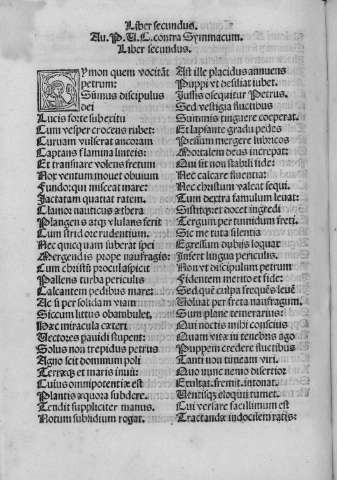 Liber secundus.
Au. P. U. C. contra Symmacum.
Liber secundus.
Symon quem vocitāt
petrum:
Sūmus discipulus
dei
Lucis forte sub exitu
Cum vesper croceus rubet:
Curuam vulserat ancoram
Captans flamina linteis:
Et transnare volens fretum
Not ventum mouet obuium
Fundo: qui misceat mare:
Iactatam quatiat ratem.
Clamor nauticus æthera
Plangens atq vlulans ferit
Cum stridore rudentium.
Nec quicquam suberat spei
Mergendis prope naufragis:
Cum christū procul aspicit
Pallens turba periculis
Calcantem pedibus mare:
Ac si per solidam viam
Siccum littus obambulet,
Hæc miracula cæteri
Vectores pauidi stupent:
Solus non trepidus petrus
Agnoscit dominum poli
Terræq et maris inuii:
Cuius omnipotentiæ est
Plantis æquora subdere.
Tendit suppliciter manus.
Notum subsidium rogat.
Ast ille placidus annuens
Puppi vt desiliat iubet.
Iussis obsequitur Petrus.
Sed vestigia fluctibus
Summis tinguere cœperat.
Et lapsante gradu pedes
Pessum mergere lubricos
Mortalem deus increpat:
Qui sit non stabili fide:
Nec calcare fluentia:
Nec christum valeat sequi.
Tum dextra famulum leuat:
Sistitq: et docet ingredi
Tergum per tumidum freti.
Sic me tuta silentia
Egressum dubiis loquax
Infert lingua periculis.
Non vt discipulum petrum
Fidentem merito et fide:
Sed quē culpa frequēs leuē
Voluat per freta naufragum.
Sum plane temerarius:
Qui noctis mihi conscius
Quam vitæ in tenebris ago
Puppem credere fluctibus
Tanti non timeam viri.
Quo nunc nemo disertior
Exultat. fremit. intonat.
Ventisq: eloquii tumet.
Cui versare facillimum est
Tractandæ indocilem ratis: